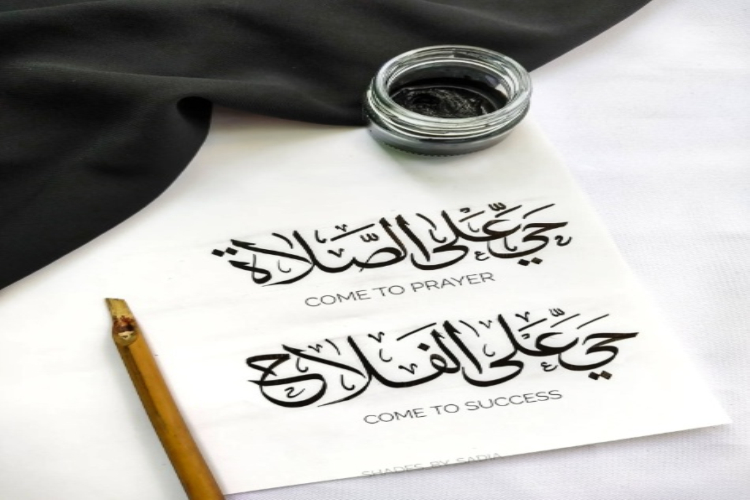 حَيَّ عَلَى الصَّلَاة
COME TO PRAYER
حَيَّ عَلَى الفَلَاح
COME TO SUCCESS
SHADES BY SADIA